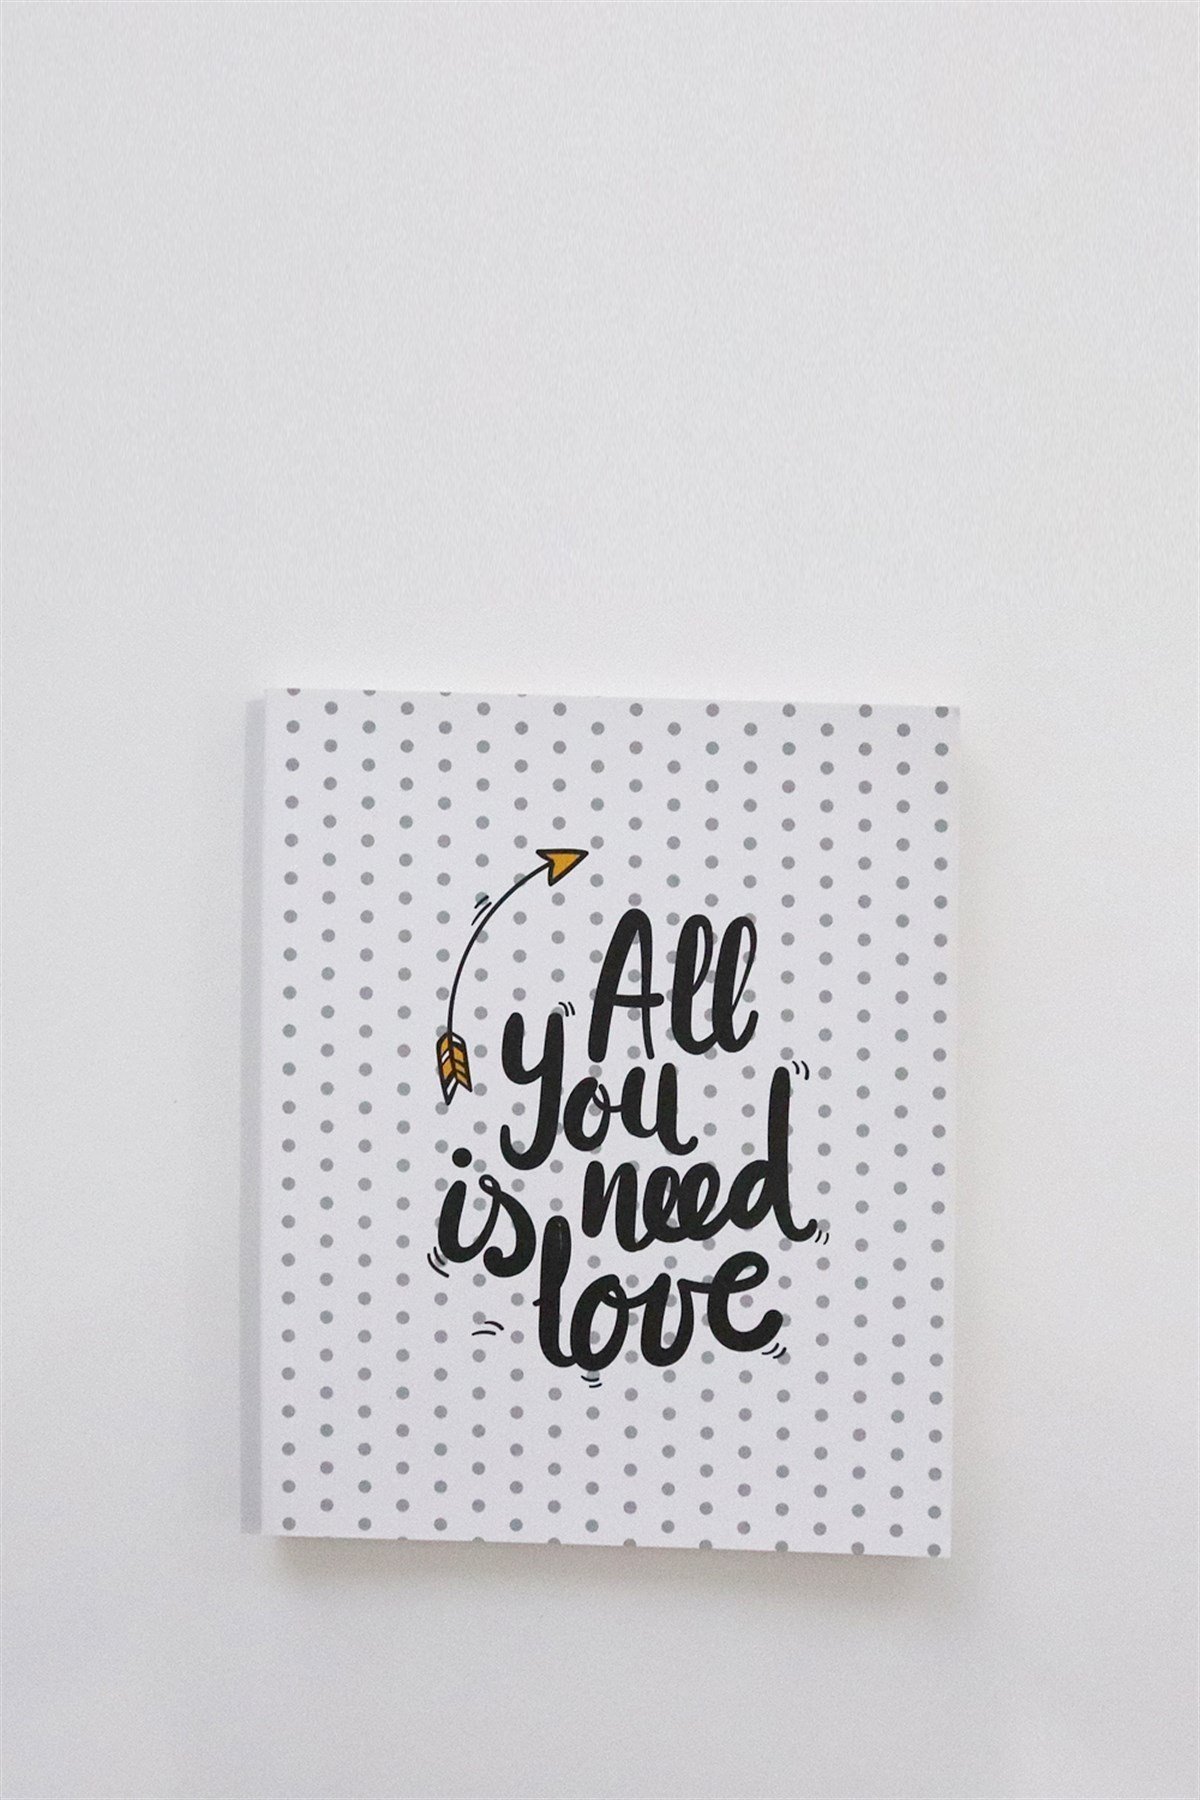 All
you
need
is
love